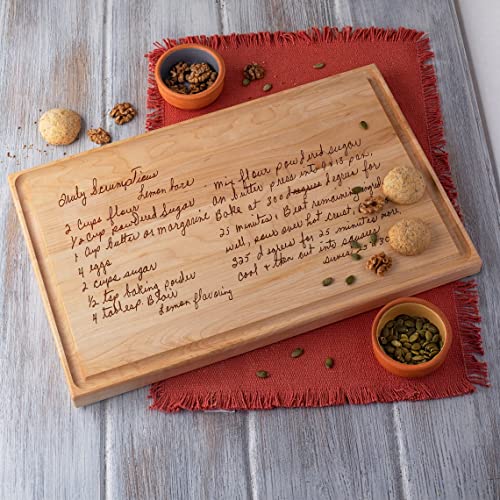 Truly Scrumptious
Lemon bars
2 cups flour
½ cup powdered sugar
1 cup butter or margarine
4 eggs
2 cups sugar
½ tsp baking powder
4 tablesp.
Lemon flavoring
Mix flour powdered sugar
butter press into 9 x 13 pan,
Bake at 300 degrees for
25 minutes. Beat remaining
well, pour over hot crust,
325 degrees for 25 minutes more,
cool & then cut into squares
Serves 30